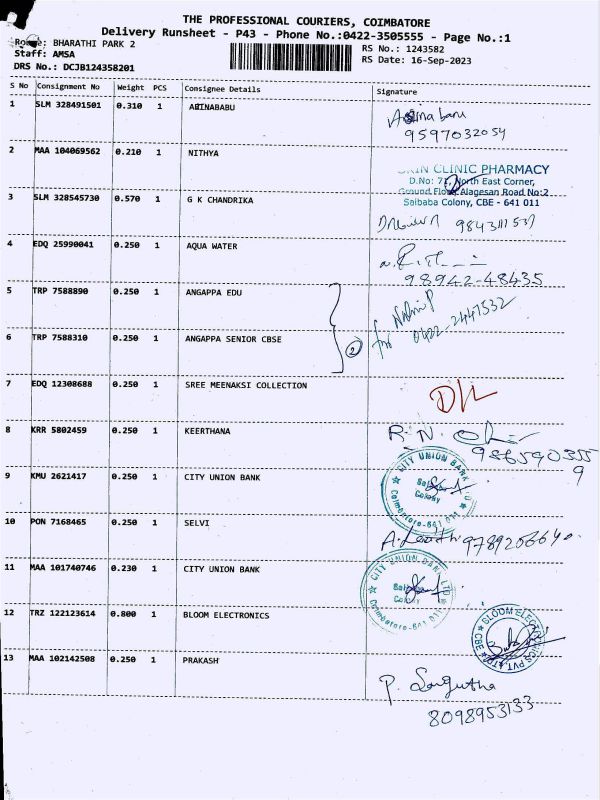 THE PROFESSIONAL COURIERS, COIMBATORE
Delivery Runsheet - P43 - Phone No.:0422-3505555 - Page No.:1
Route: BHARATHI PARK 2
RS No.: 1243582
Staff: AMSA
RS Date: 16-Sep-2023
DRS No.: DCJB124358201
S No Consignment No Weight PCS Consignee Details Signature
1 SLM 328491501 0.310 1 ARINABABU
9597032054
2 MAA 104069562 0.210 1 NITHYA
SKIN CLINIC PHARMACY
D.No: 71, North East Corner,
Ground Floor, Alagesan Road No:2
Saibaba Colony, CBE - 641 011
3 SLM 328545730 0.570 1 G K CHANDRIKA
4 EDQ 25990041 0.250 1 AQUA WATER
98942-48435
5 TRP 7588890 0.250 1 ANGAPPA EDU
for
0422-2447532
6 TRP 7588310 0.250 1 ANGAPPA SENIOR CBSE
2
7 EDQ 12308688 0.250 1 SREE MEENAKSI COLLECTION
D/L
8 KRR 5802459 0.250 1 KEERTHANA
R. N.
986590355
9
9 KMU 2621417 0.250 1 CITY UNION BANK
CITY UNION BANK LTD
Saibaba
Colony
Coimbatore-641 011
10 PON 7168465 0.250 1 SELVI
9789206640
11 MAA 101740746 0.230 1 CITY UNION BANK
CITY UNION BANK LTD
Saibaba
Colony
Coimbatore-641 011
12 TRZ 122123614 0.800 1 BLOOM ELECTRONICS
BLOOM ELECTRONICS PVT.
13 MAA 102142508 0.250 1 PRAKASH
P. Sagutha
8098953133